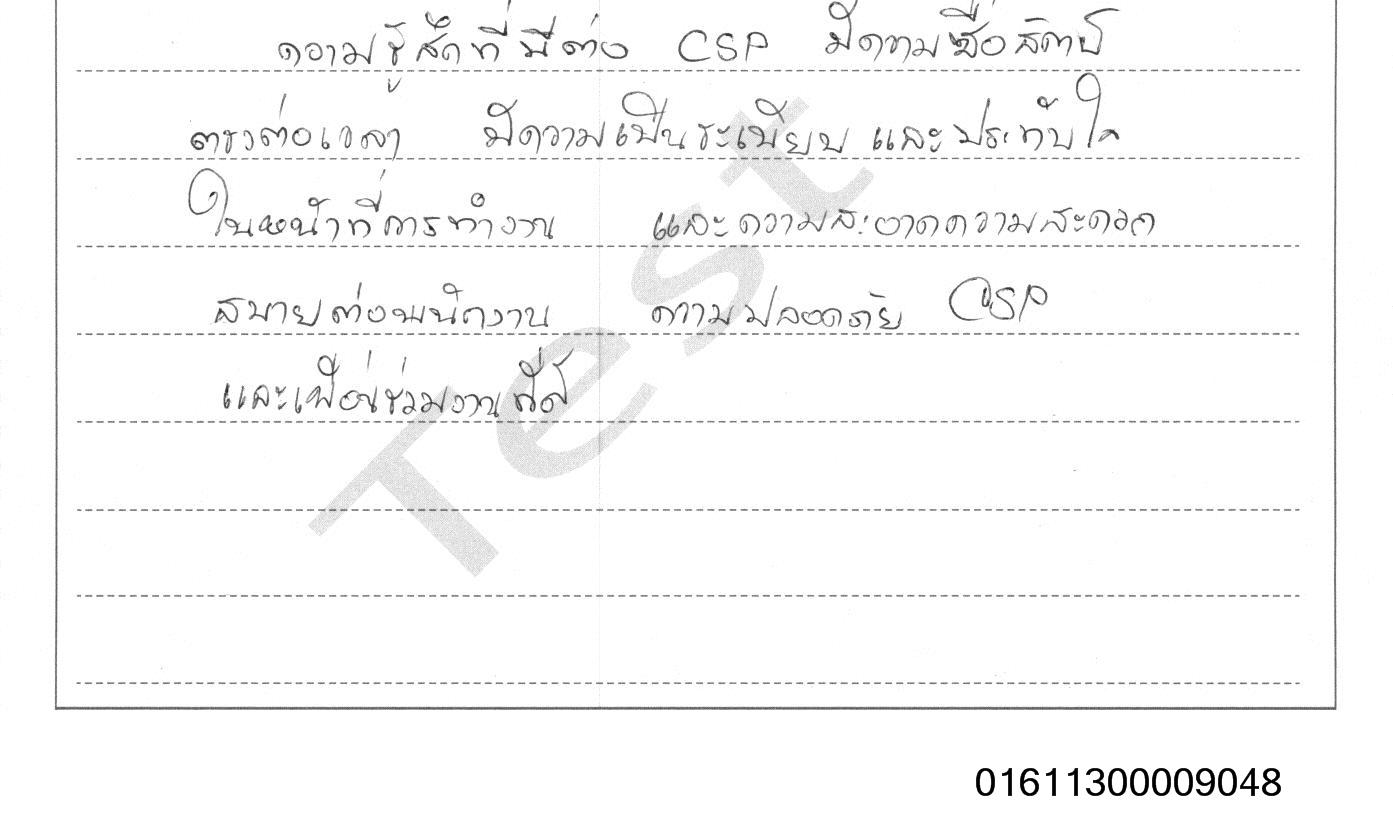 ความรู้สึกที่มีต่อ CSP มีความซื่อสัตย์
ตรงต่อเวลา มีความเป็นระเบียบ และประทับใจ
ในหน้าที่การทำงาน และความสะอาดความสะดวก
สบายต่อพนักงาน ความปลอดภัย CSP
และเพื่อนร่วมงานที่ดี
Test
01611300009048